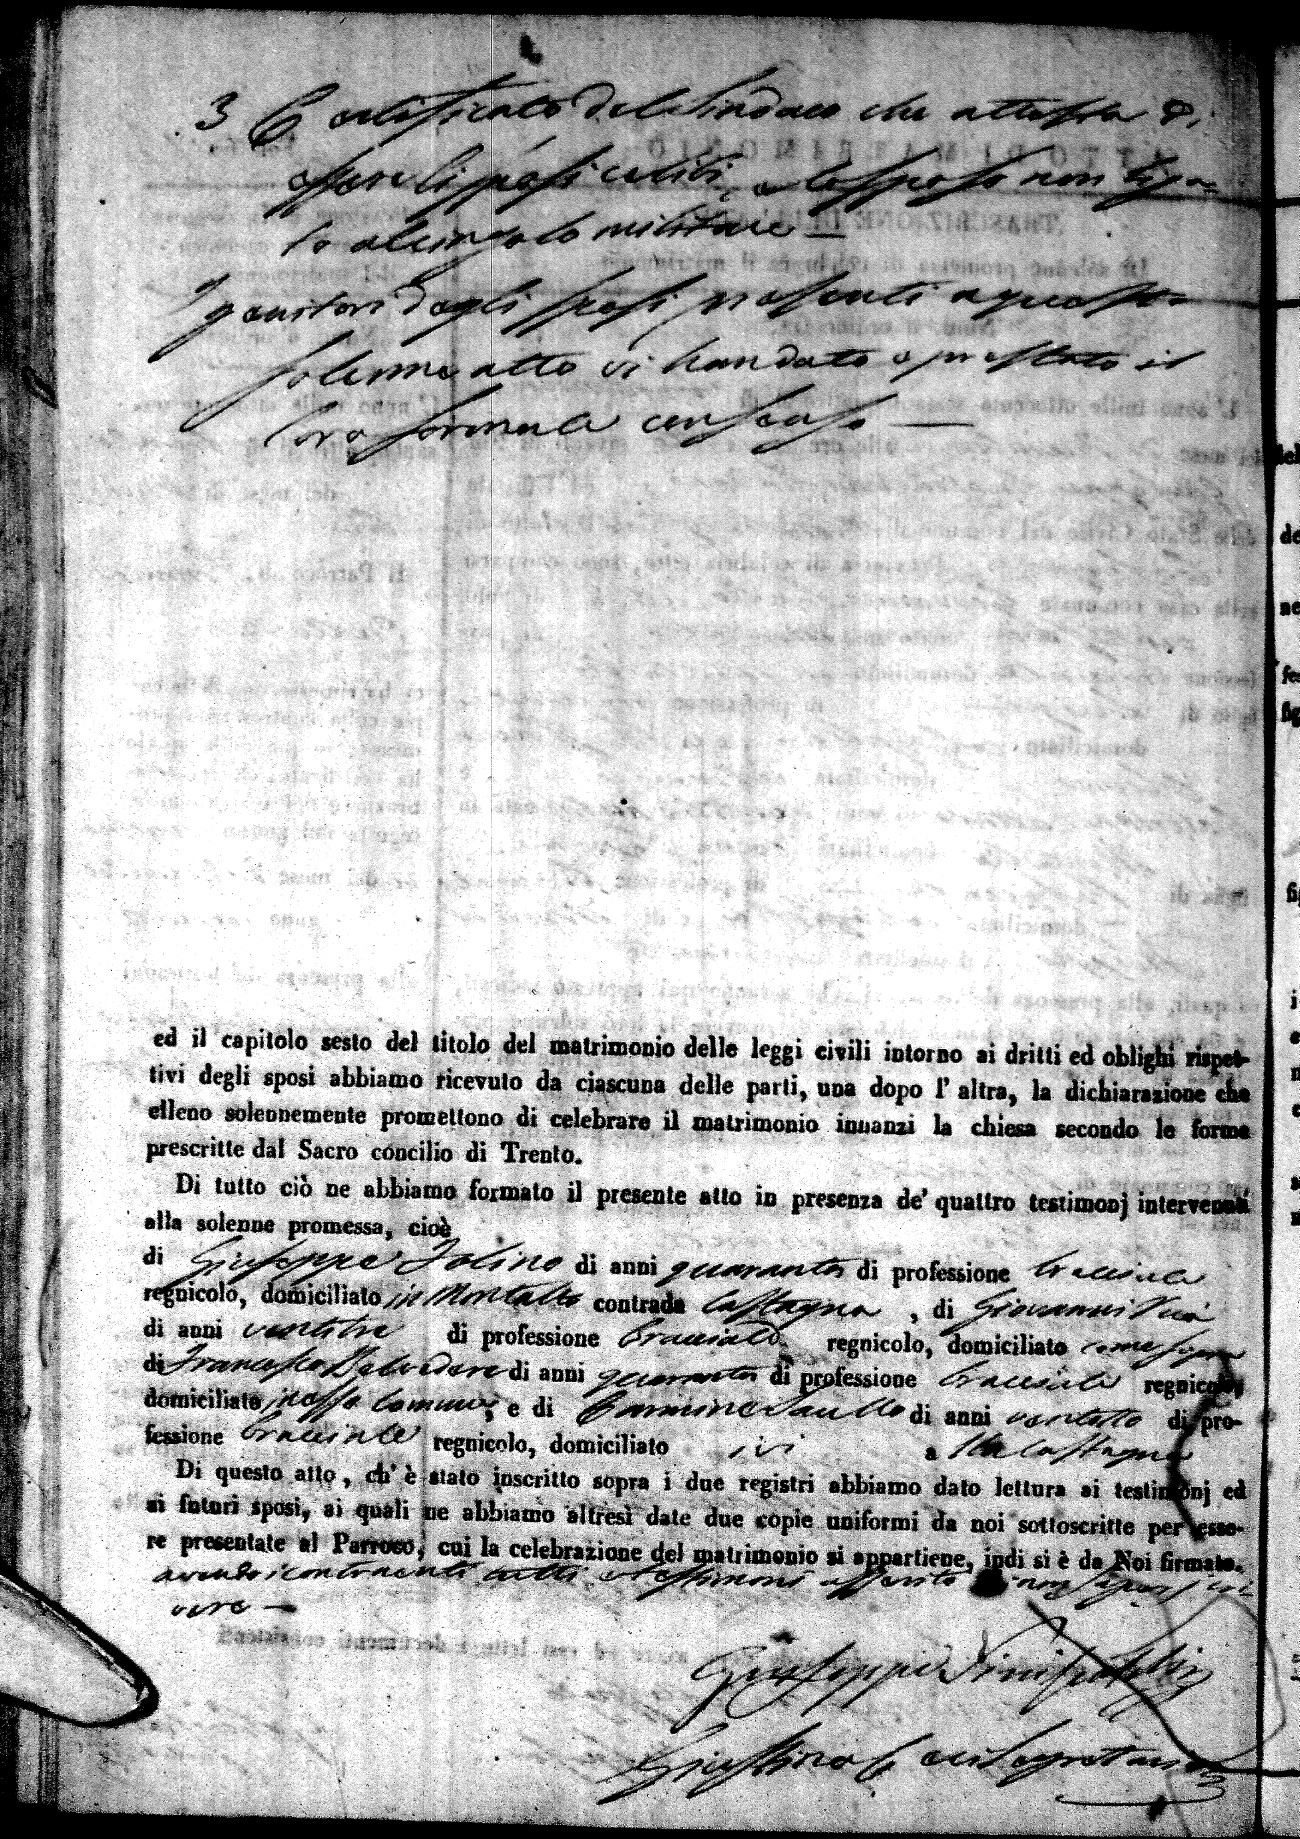 3 Certificato del Sindaco che attesta di
essere li sposi celibi, e lo sposo non lega-
to al cingolo militare —
I genitori degli sposi presenti a questo
solenne atto vi han dato e prestato il
loro formale consenso —
ed il capitolo sesto del titolo del matrimonio delle leggi civili intorno ai dritti ed oblighi rispet-
tivi degli sposi abbiamo ricevuto da ciascuna delle parti, una dopo l'altra, la dichiarazione che
elleno solennemente promettono di celebrare il matrimonio innanzi la chiesa secondo le forme
prescritte dal Sacro concilio di Trento.
Di tutto ciò ne abbiamo formato il presente atto in presenza de' quattro testimonj intervenuti
alla solenne promessa, cioè
di Giuseppe Iolino di anni quaranta di professione bracciale
regnicolo, domiciliato in Montalto contrada Castagna , di Giovanni
di anni ventitre di professione bracciale regnicolo, domiciliato come sopra
di Francesco Belvedere di anni quaranta di professione bracciale regnicolo,
domiciliato in esso Comune, e di Carmine di anni ventotto di pro-
fessione bracciale regnicolo, domiciliato ivi a lla Castagna
Di questo atto, ch' è stato inscritto sopra i due registri abbiamo dato lettura ai testimonj ed
ai futuri sposi, ai quali ne abbiamo altresì date due copie uniformi da noi sottoscritte per esse-
re presentate al Parroco, cui la celebrazione del matrimonio si appartiene, indi si è da Noi firmato.
avendo i contraenti tutti, e testimoni asserito non sapere scri-
vere —
Giuseppe
Giustino Segretario